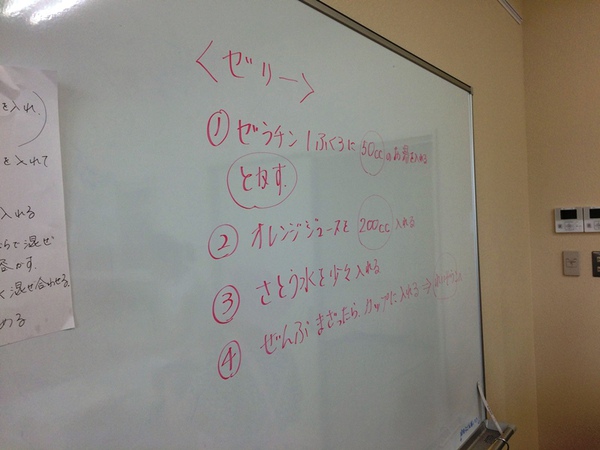 を入れ、
を入れて
入れる
混ぜ
かす。
く混ぜ合わせる
める
<ゼリー>
① ゼラチン1ふくろに 50cc のお湯を入れる
とかす。
② オレンジジュースを 200cc 入れる
③ さとう水を少々入れる
④ ぜんぶ まざったら、カップに入れる⇒